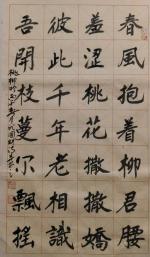 春風抱着柳君腰
羞澀桃花撒撒嬌
彼此千年老相識
吾開枝蔓尔飄搖